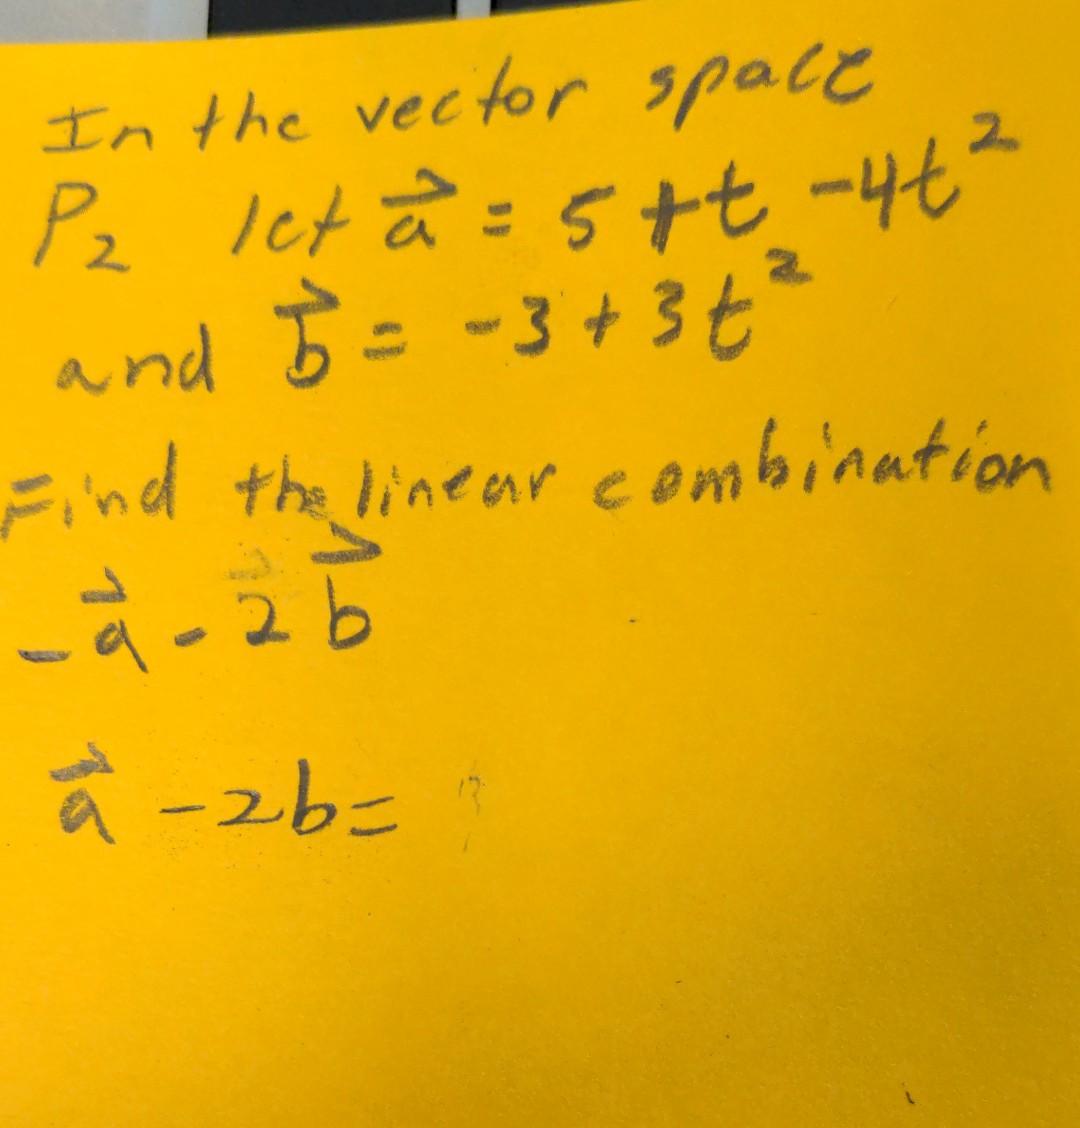 In the vector space
P₂ let a⃗ = 5 + t - 4t²
and b⃗ = -3 + 3t²
Find the linear combination
-a⃗ - 2b⃗
a⃗ - 2b =